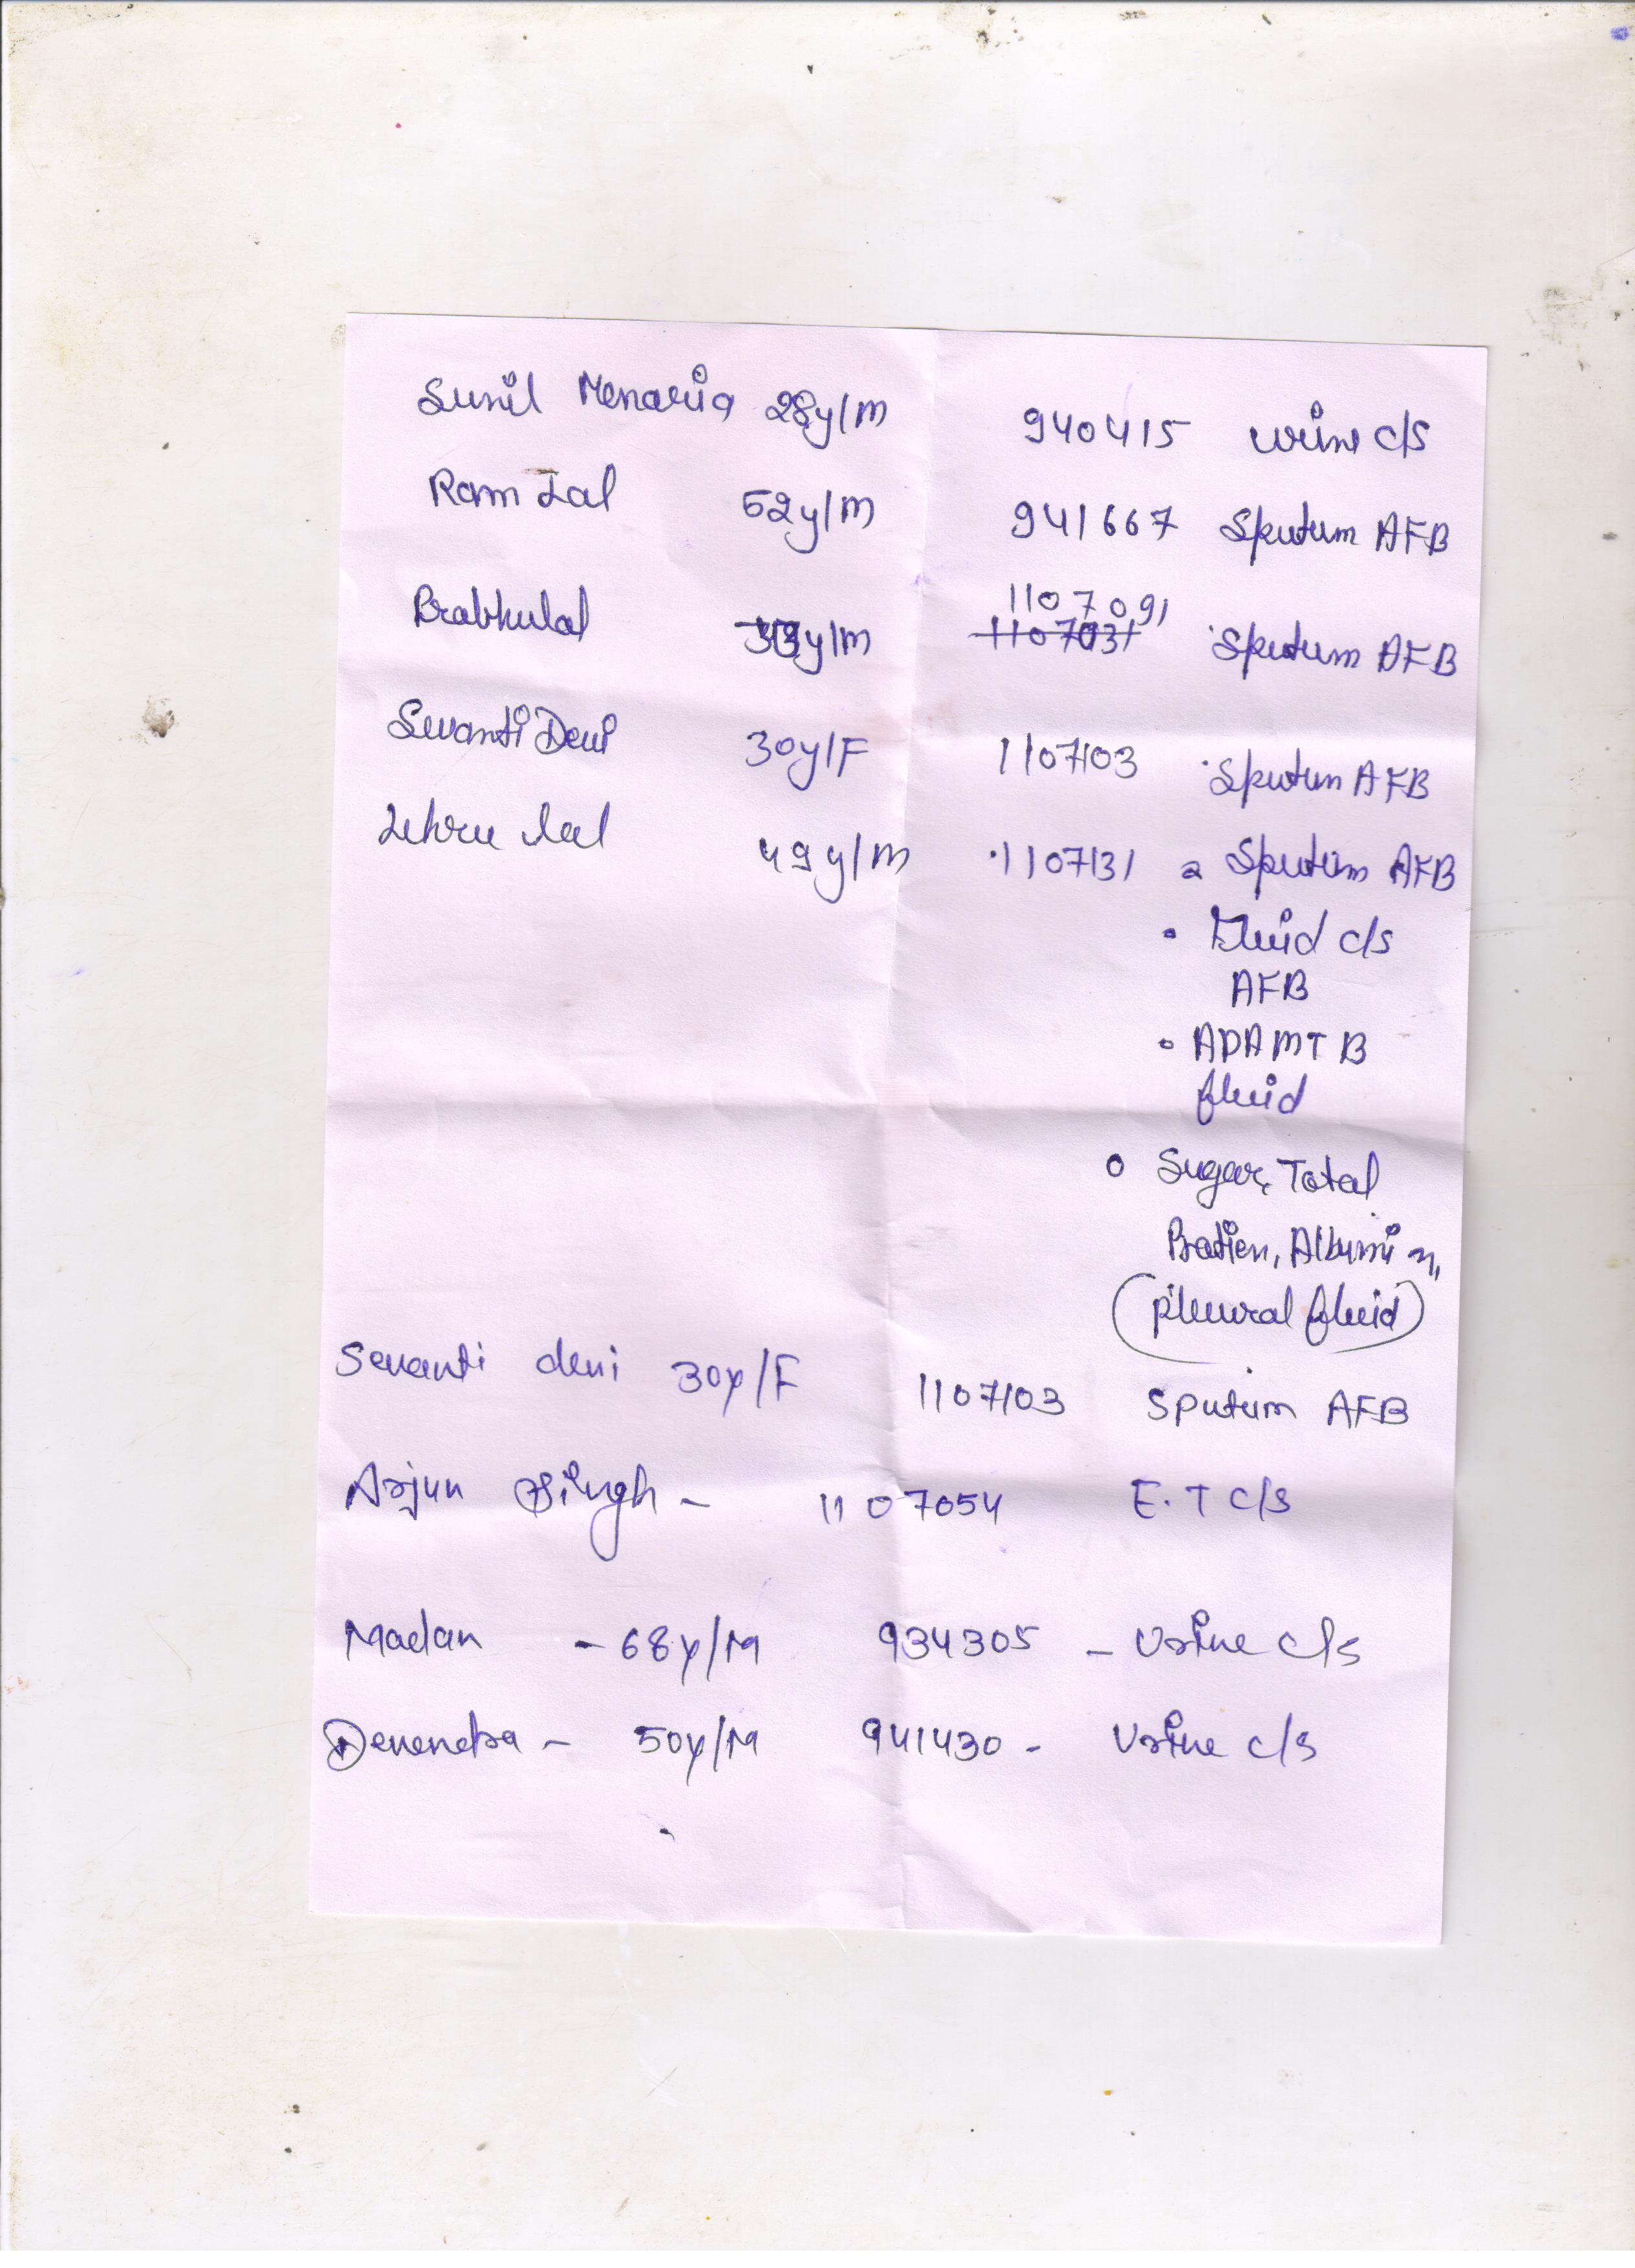 Sunil Menaria 28y/m 940415 urine c/s
Ram Lal 52y/m 941667 Sputum AFB
1107091
Prabhulal y/m 1107031 Sputum AFB
Sevanti Devi 30y/F 1107103 Sputum AFB
Lehru Lal 49y/m 1107131 Sputum AFB
• Fluid c/s
AFB
• ADA MTB
fluid
• Sugar, Total
Protien, Albumin,
(pleural fluid)
Sevanti devi 30y/F 1107103 Sputum AFB
Arjun Singh - 1107054 E.T c/s
Madan - 68y/M 934305 - Urine c/s
Devendra - 50y/M 941430 - Urine c/s